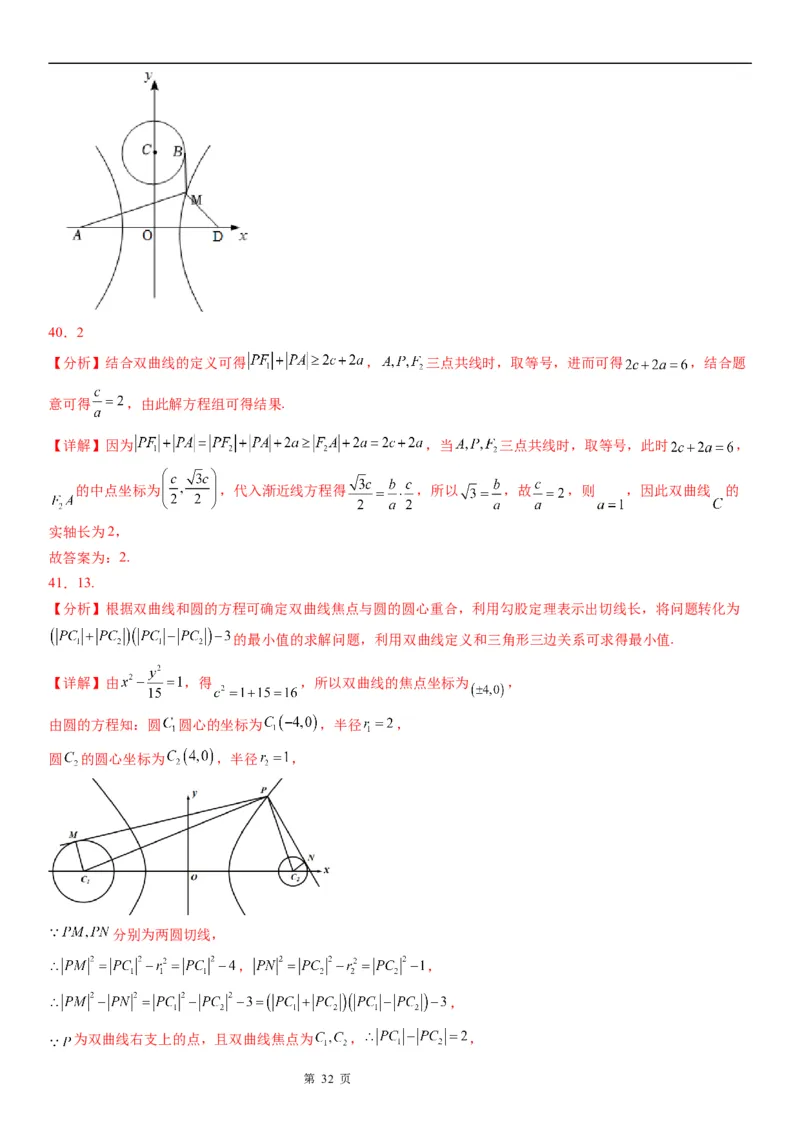 y
C
B
M
A
O
D
x
40．2
【分析】结合双曲线的定义可得|PF₁|+|PA|≥2c+2a，A,P,F₂三点共线时，取等号，进而可得2c+2a=6，结合题
意可得c/a=2，由此解方程组可得结果.
【详解】因为|PF₁|+|PA|=|PF₂|+|PA|+2a≥|F₂A|+2a=2c+2a，当A,P,F₂三点共线时，取等号，此时2c+2a=6，
F₂A的中点坐标为(c/2, √3c/2)，代入渐近线方程得√3c/2=b/a·c/2，所以√3=b/a，故c/a=2，则a=1，因此双曲线C的
实轴长为2，
故答案为：2.
41．13.
【分析】根据双曲线和圆的方程可确定双曲线焦点与圆的圆心重合，利用勾股定理表示出切线长，将问题转化为
(|PC₁|+|PC₂|)(|PC₁|-|PC₂|)-3的最小值的求解问题，利用双曲线定义和三角形三边关系可求得最小值.
【详解】由x²-y²/15=1，得c²=1+15=16，所以双曲线的焦点坐标为(±4,0)，
由圆的方程知：圆C₁圆心的坐标为C₁(-4,0)，半径r₁=2，
圆C₂的圆心坐标为C₂(4,0)，半径r₂=1，
y
P
M
N
C₁
O
C₂
x
∵PM,PN分别为两圆切线，
∴|PM|²=|PC₁|²-r₁²=|PC₁|²-4，|PN|²=|PC₂|²-r₂²=|PC₂|²-1，
∴|PM|²-|PN|²=|PC₁|²-|PC₂|²-3=(|PC₁|+|PC₂|)(|PC₁|-|PC₂|)-3，
∵P为双曲线右支上的点，且双曲线焦点为C₁,C₂，∴|PC₁|-|PC₂|=2，
第 32 页